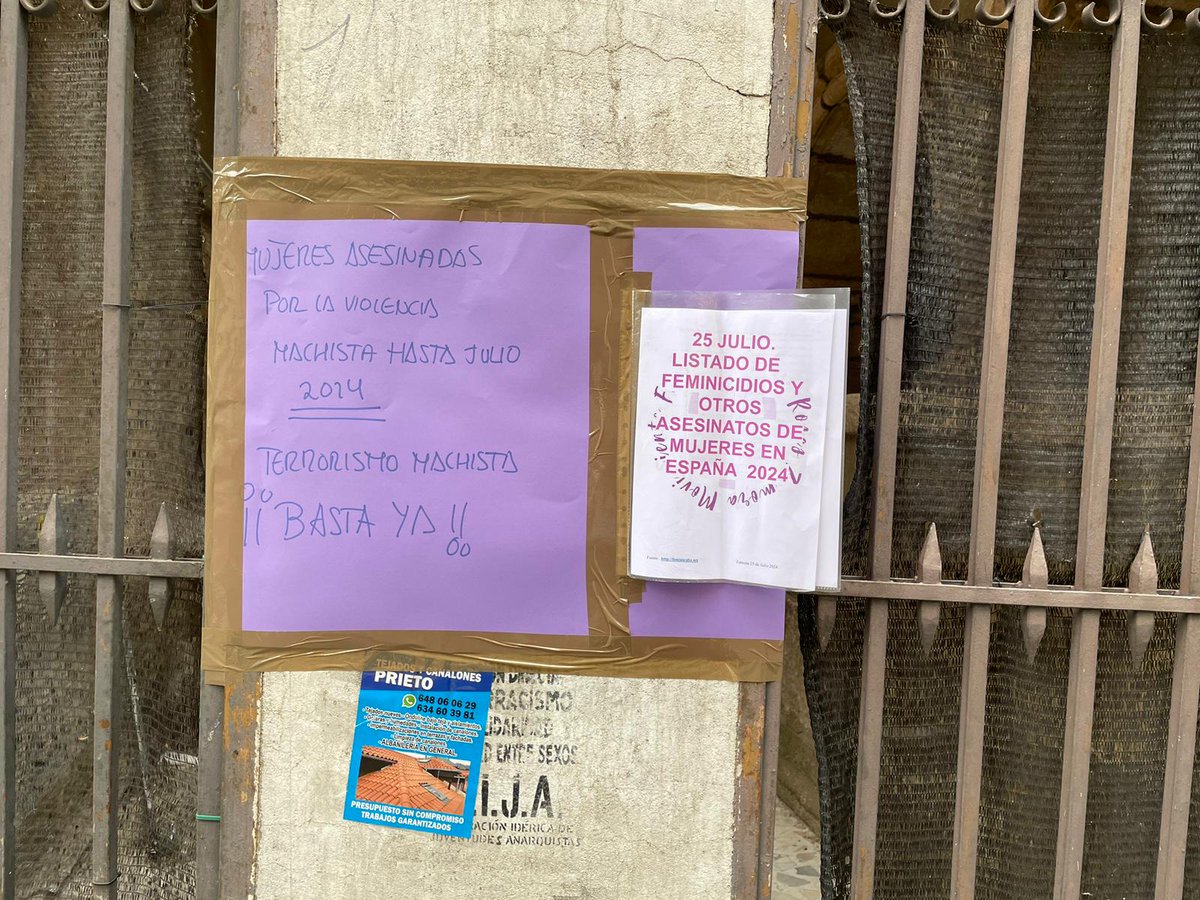 MUJERES ASESINADAS
POR LA VIOLENCIA
MACHISTA HASTA JULIO
2024
TERRORISMO MACHISTA
¡¡ BASTA YA !!
25 JULIO.
LISTADO DE
FEMINICIDIOS Y
OTROS
ASESINATOS DE
MUJERES EN
ESPAÑA 2024
TEJADOS Y CANALONES
PRIETO
648 06 06 29
634 60 39 81
ALBAÑILERÍA EN GENERAL
PRESUPUESTO SIN COMPROMISO
TRABAJOS GARANTIZADOS
ENTRE SEXOS
I.J.A
IBÉRICA DE
JUVENTUDES ANARQUISTAS